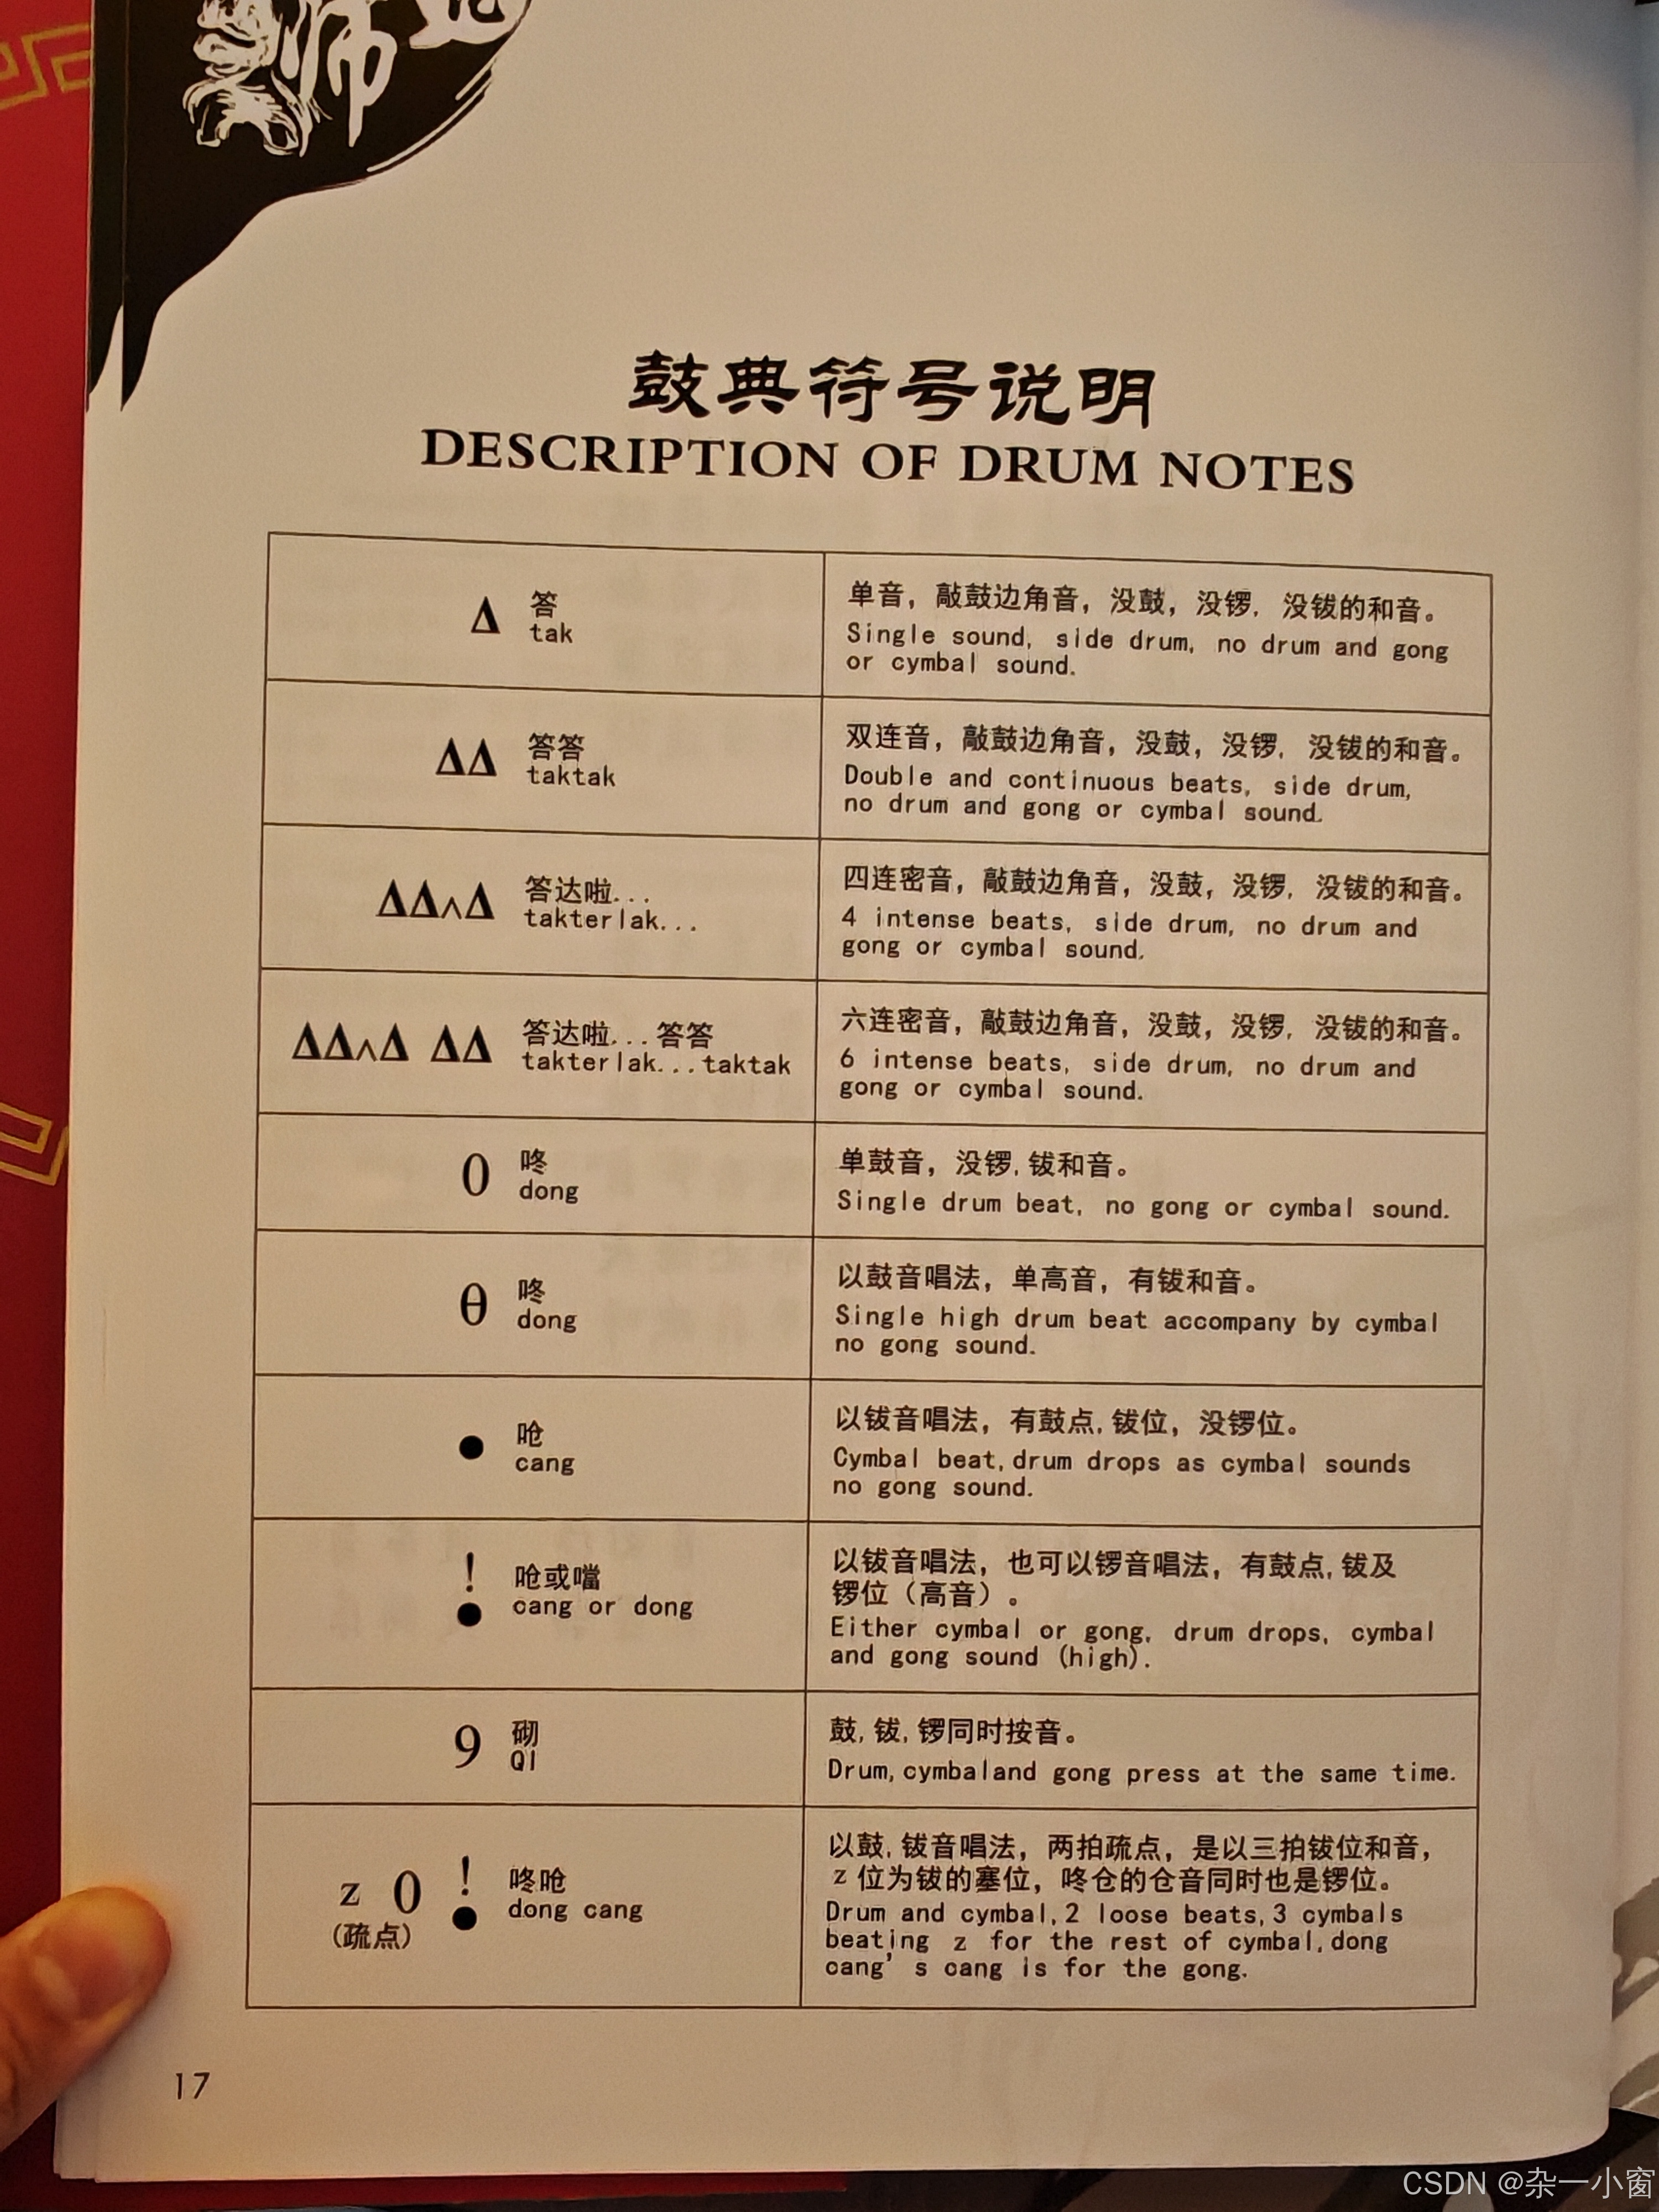 师
鼓典符号说明
DESCRIPTION OF DRUM NOTES
Δ 答
tak
单音，敲鼓边角音，没鼓，没锣，没钹的和音。
Single sound, side drum, no drum and gong
or cymbal sound.
ΔΔ 答答
taktak
双连音，敲鼓边角音，没鼓，没锣，没钹的和音。
Double and continuous beats, side drum,
no drum and gong or cymbal sound.
ΔΔ^Δ 答达啦...
takterlak...
四连密音，敲鼓边角音，没鼓，没锣，没钹的和音。
4 intense beats, side drum, no drum and
gong or cymbal sound.
ΔΔ^Δ ΔΔ 答达啦...答答
takterlak...taktak
六连密音，敲鼓边角音，没鼓，没锣，没钹的和音。
6 intense beats, side drum, no drum and
gong or cymbal sound.
0 咚
dong
单鼓音，没锣,钹和音。
Single drum beat, no gong or cymbal sound.
θ 咚
dong
以鼓音唱法，单高音，有钹和音。
Single high drum beat accompany by cymbal
no gong sound.
● 呛
cang
以钹音唱法，有鼓点,钹位，没锣位。
Cymbal beat,drum drops as cymbal sounds
no gong sound.
!
● 呛或噹
cang or dong
以钹音唱法，也可以锣音唱法，有鼓点,钹及
锣位（高音）。
Either cymbal or gong, drum drops, cymbal
and gong sound (high).
9 砌
QI
鼓,钹,锣同时按音。
Drum,cymbaland gong press at the same time.
z 0 !
● 咚呛
(疏点) dong cang
以鼓,钹音唱法，两拍疏点，是以三拍钹位和音，
z 位为钹的塞位，咚仓的仓音同时也是锣位。
Drum and cymbal,2 loose beats,3 cymbals
beating z for the rest of cymbal,dong
cang's cang is for the gong.
17
CSDN @杂一小窗